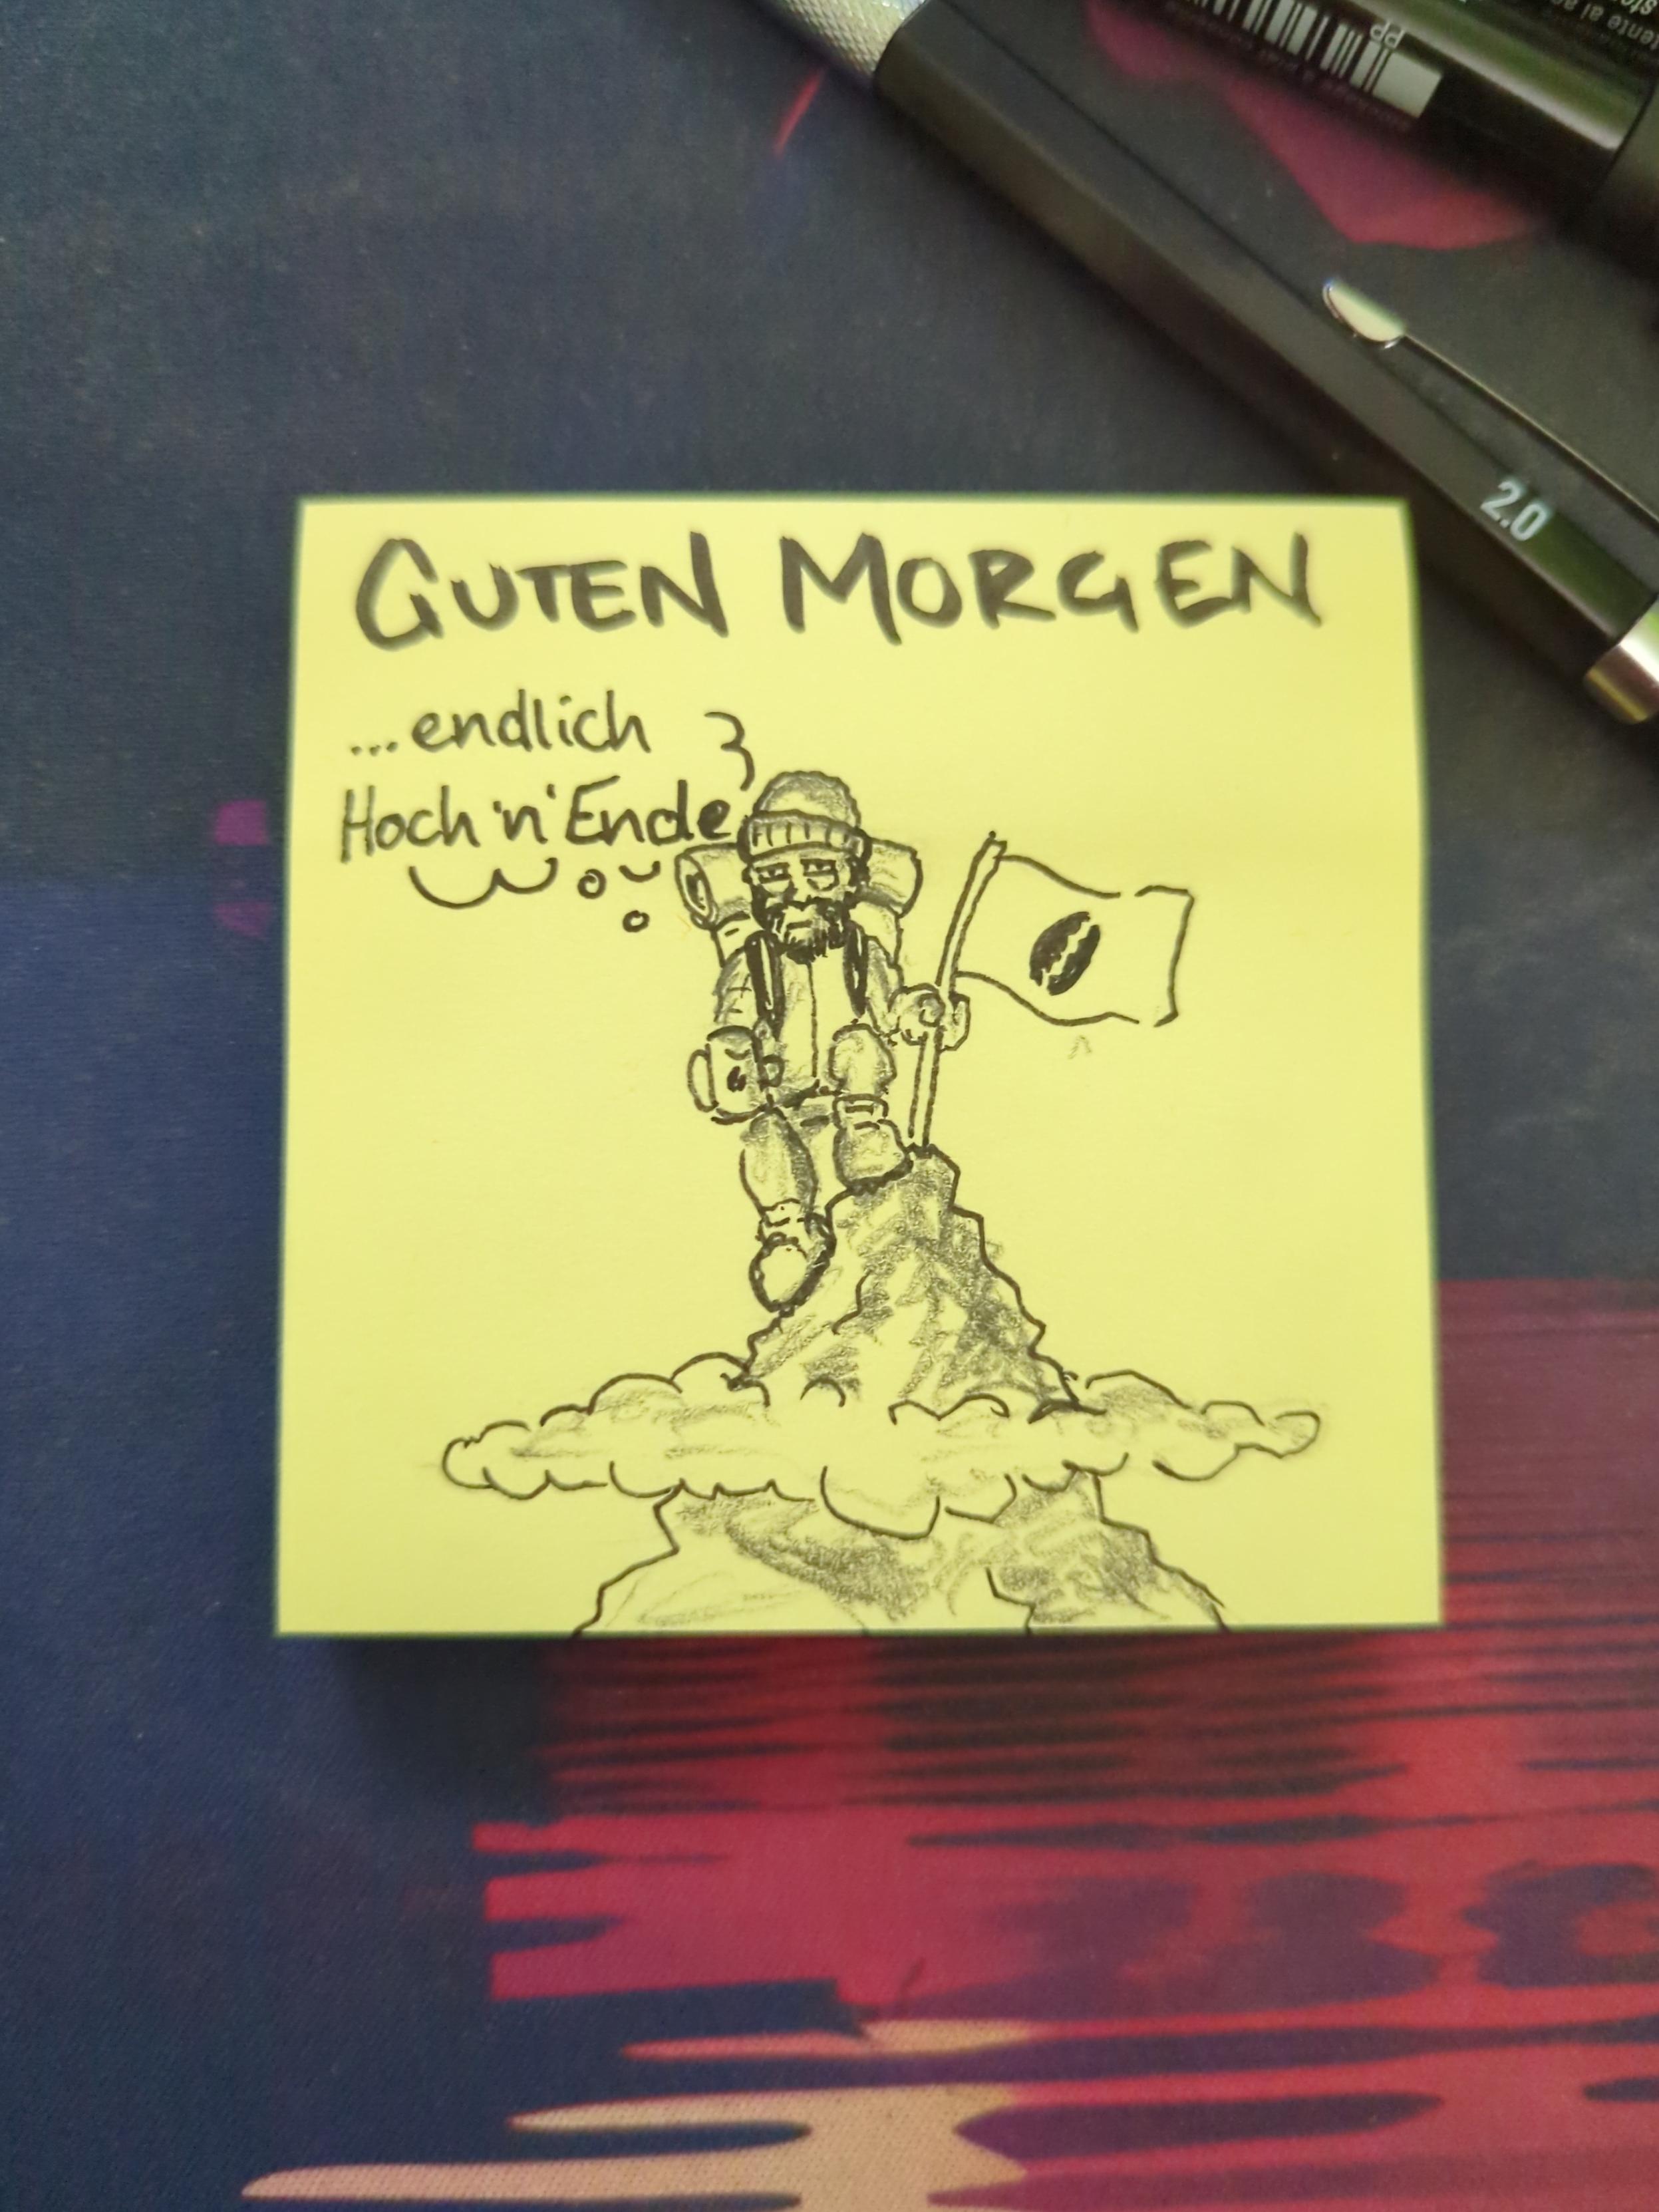 GUTEN MORGEN
...endlich
Hoch 'n' Ende
2.0
PP